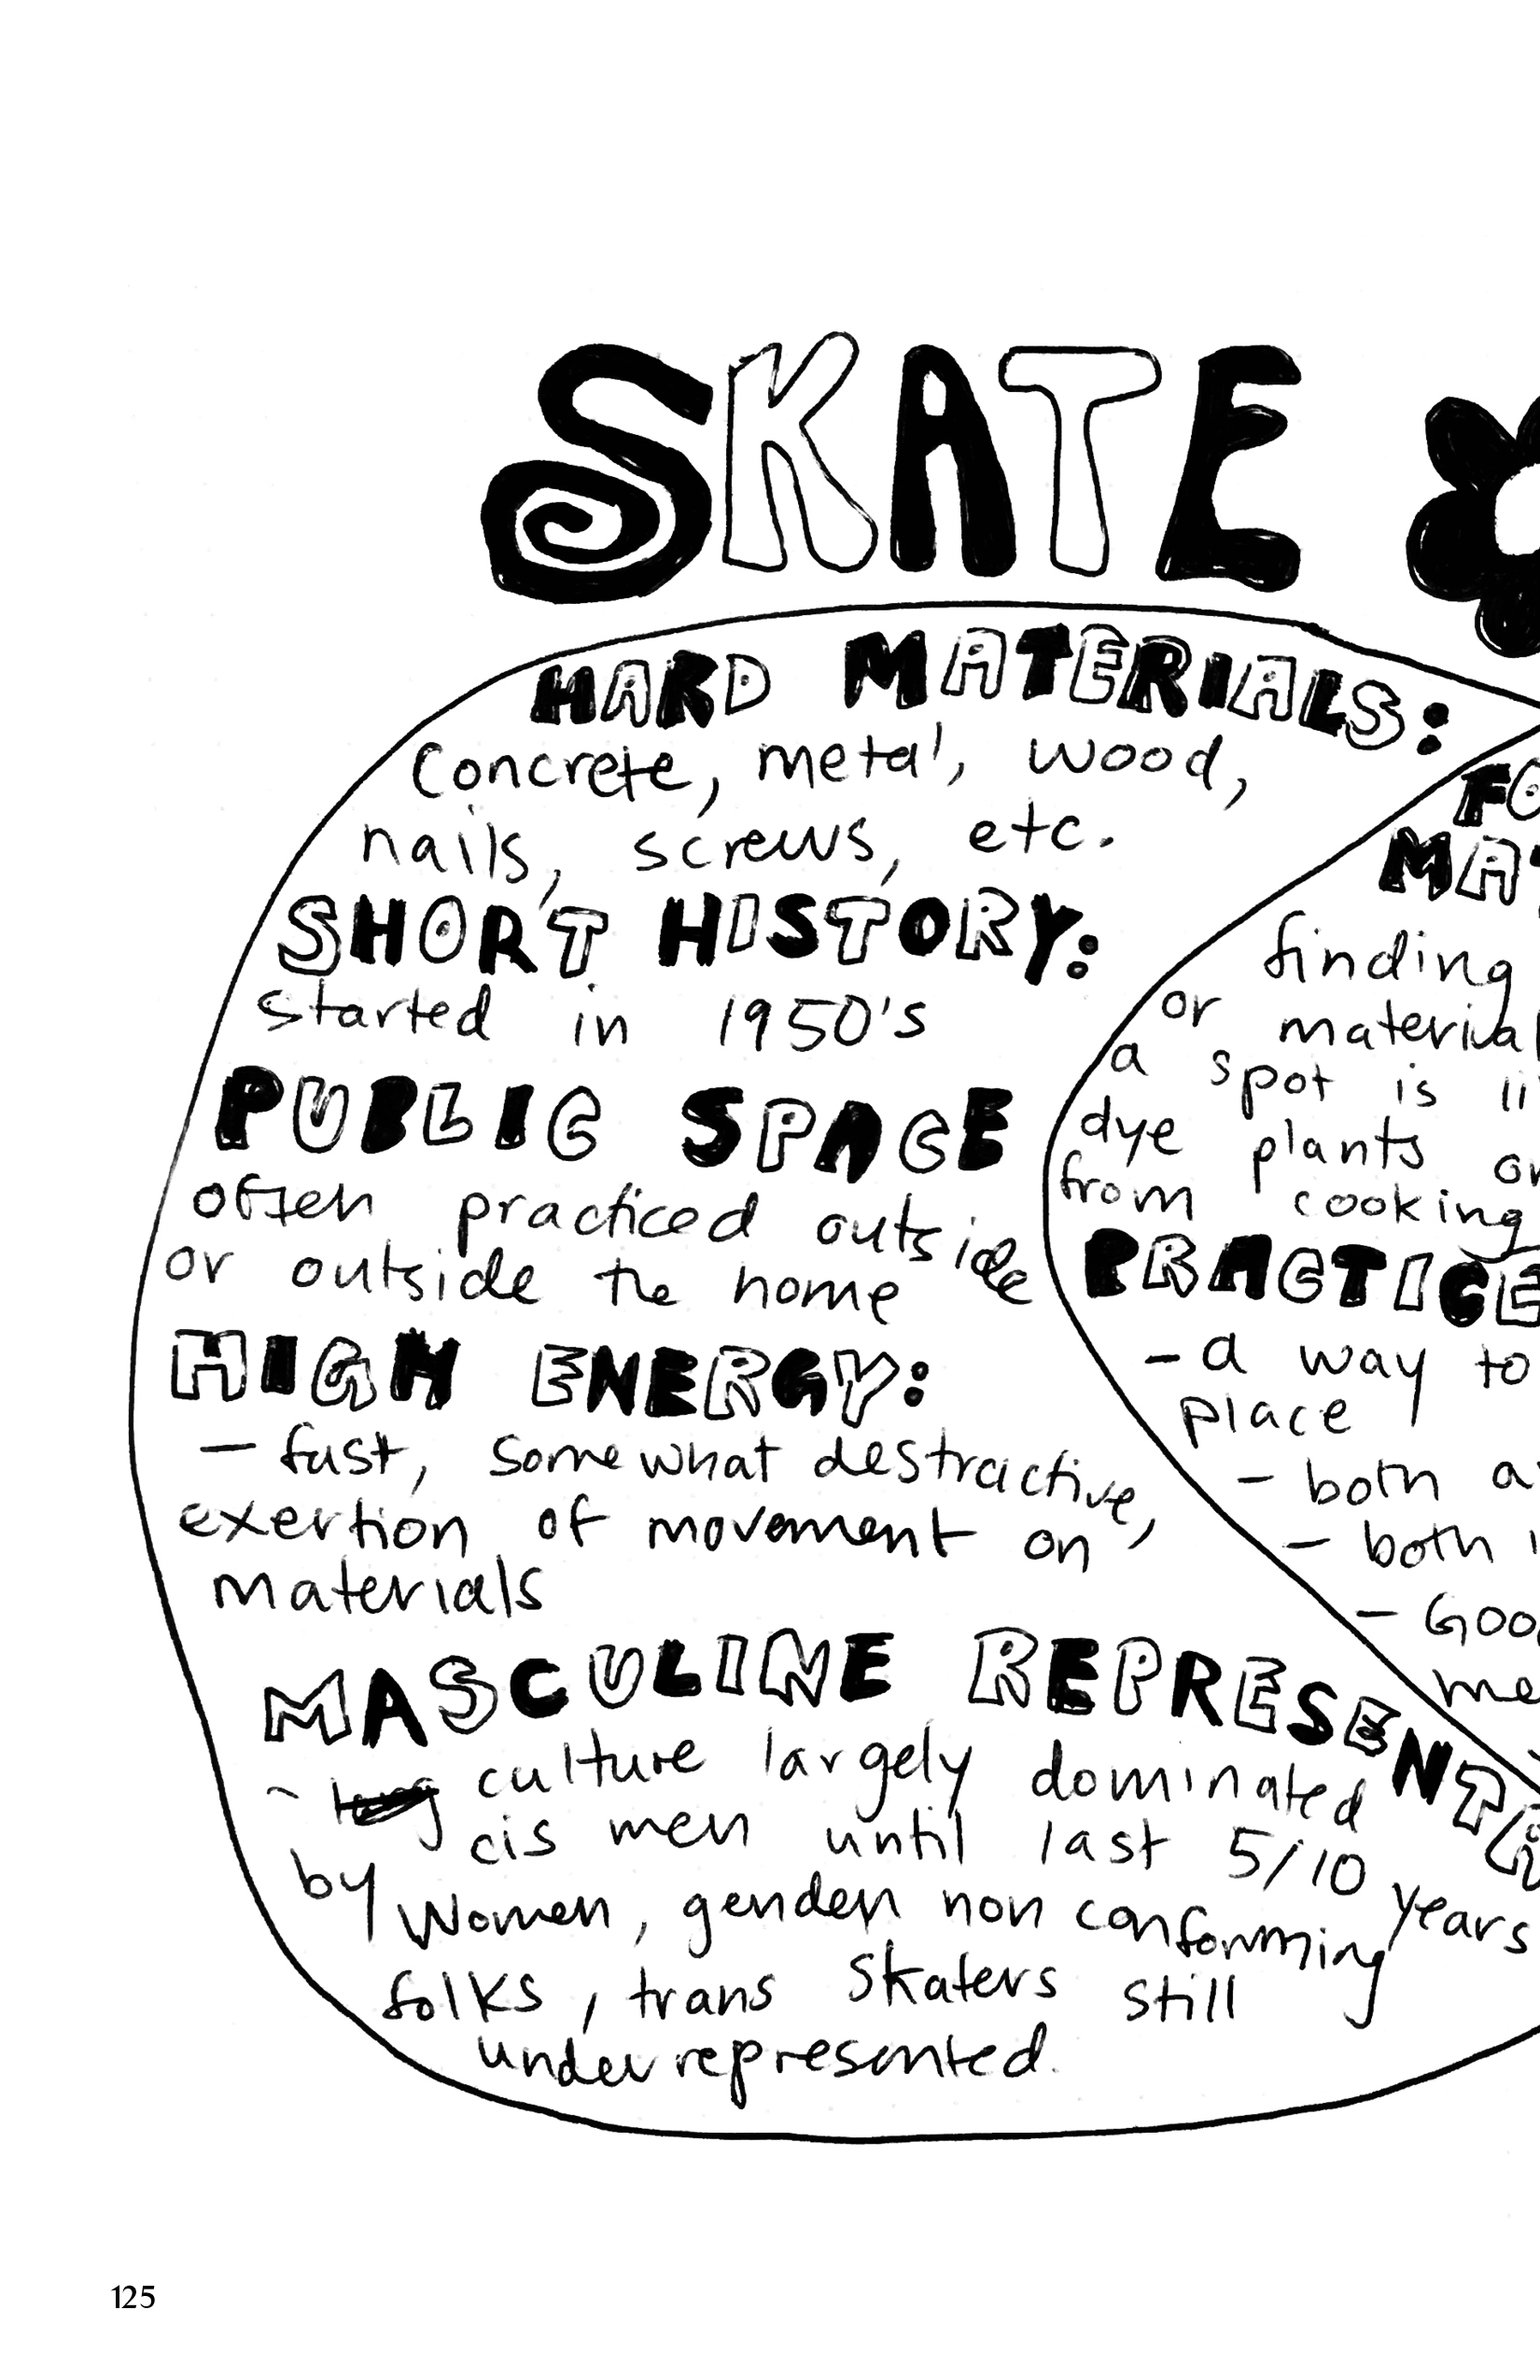 SKATE
HARD MATERIALS:
Concrete, metal, wood,
nails, screws, etc.
SHORT HISTORY:
started in 1950's
PUBLIC SPACE
often practiced outside
or outside the home
HIGH ENERGY:
- fast, somewhat destructive,
exertion of movement on
materials
MASCULINE REPRESENT
- culture largely dominated
by cis men until last 5/10 years
Women, gender non conforming
folks, trans skaters still
underrepresented.
FO
MAT
finding
or material
a spot is li
dye plants or
from cooking
PRACTICE
- a way to
place
- both a
- both i
- Goo
me
125